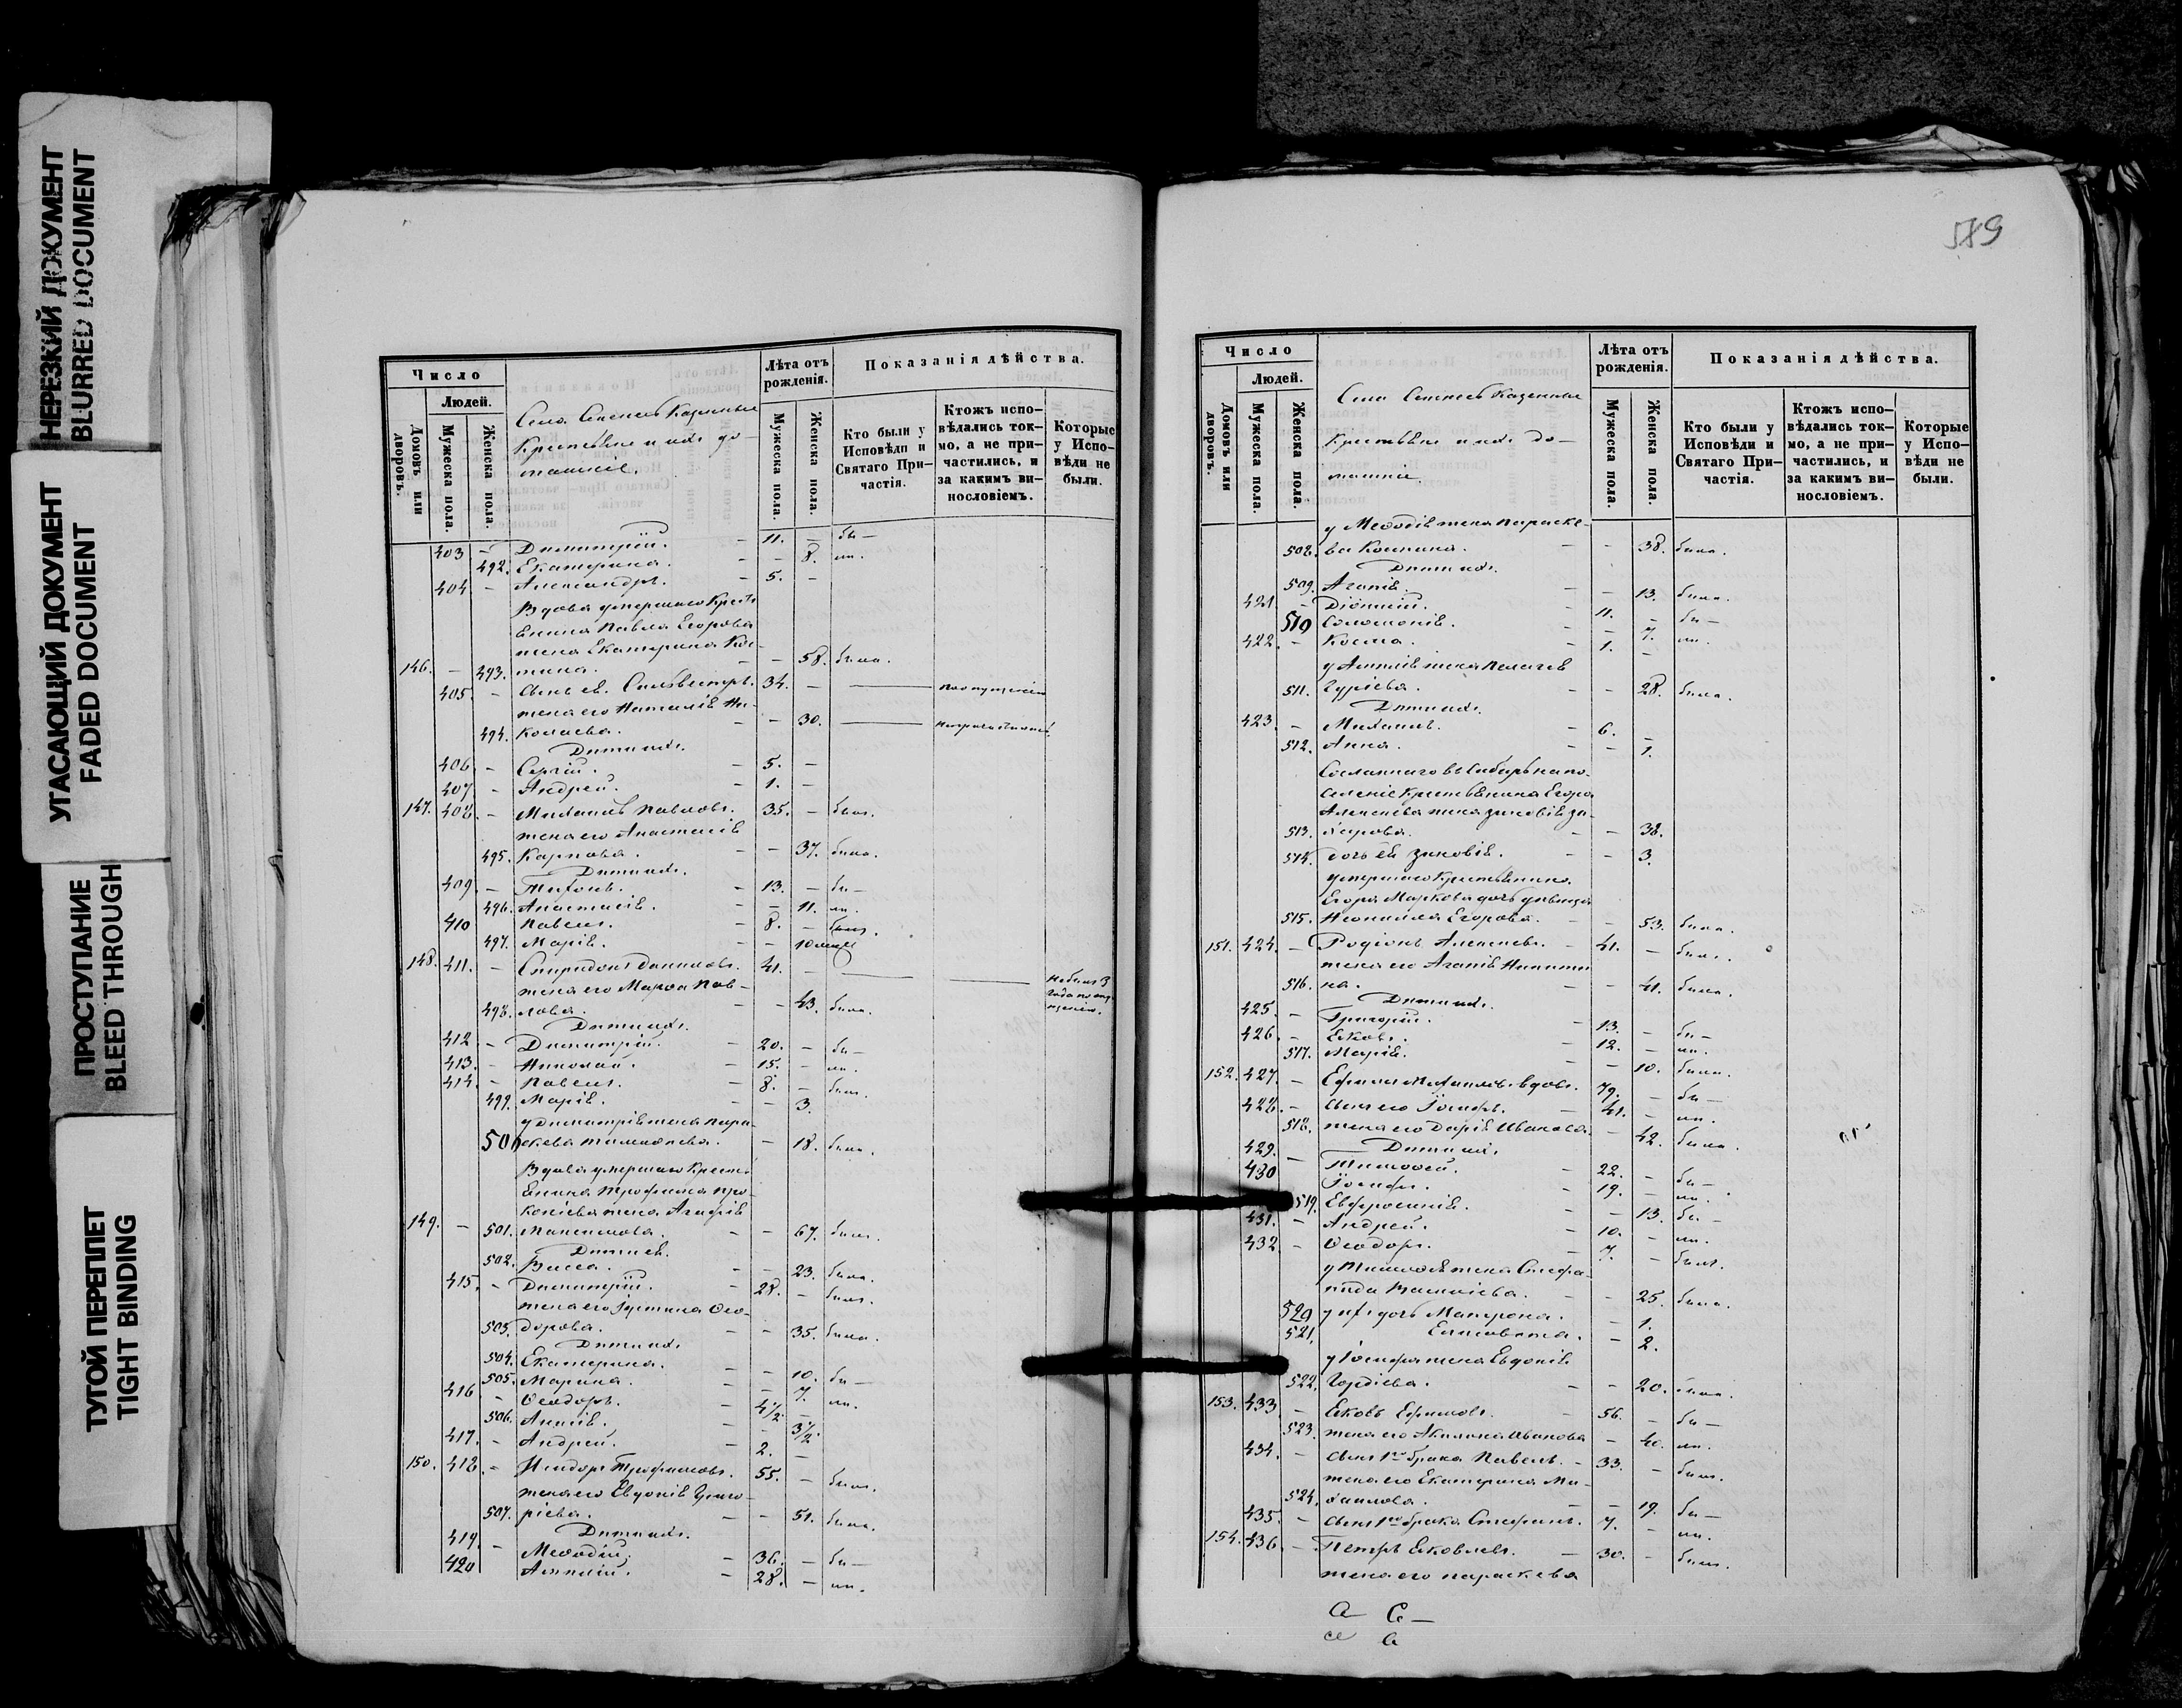 НЕРЕЗКИЙ ДОКУМЕНТ
BLURRED DOCUMENT
УГАСАЮЩИЙ ДОКУМЕНТ
FADED DOCUMENT
ПРОСТУПАНИЕ
BLEED THROUGH
ТУГОЙ ПЕРЕПЛЕТ
TIGHT BINDING
Число
Людей.
Домовъ или дворовъ.
Мужеска пола.
Женска пола.
Села Казенные
Крестьяне и ихъ до-
машніе.
Лѣта отъ рожденія.
Мужеска пола.
Женска пола.
Показанія дѣйства.
Кто были у Исповѣди и Святаго При-частія.
Ктожъ испо-вѣдались ток-мо, а не при-частились, и за какимъ ви-нословіемъ.
Которые у Испо-вѣди не были.
403 - Димитрій. - 11. - бы-
492. Екатерина. - - 8. ли.
404 - Александръ. - 5. -
Вдова умершаго Кресть
янина Павла Егорова
жена Екатерина Кос-
146. - 493. мина. - - 58. была.
405. - сынъ ея Сильвестръ. 34. - по опущенію
жена его Наталія Ни-
494. колаева. - - 30.
Дѣти ихъ.
406. - Сергій. - 5. -
407. - Андрей. - 1. -
147. 408. - Михаилъ Павловъ. 35. - былъ.
жена его Анастасія
495. Карпова. - - 37. была.
Дѣти ихъ.
409. - Тихонъ. - 13. - бы-
496. Анастасія. - - 11. ли.
410 Павелъ. - 8. - былъ.
497. Марія. - - 10 мѣсяц
148. 411. - Спиридонъ Даниловъ. 41. - не былъ 3 года по опу-щенію.
жена его Марѳа Пав-
498. лова. - - 43. была.
Дѣти ихъ.
412 - Димитрій. - 20. - бы-
413. - Николай. - 15. - ли.
414. - Павелъ. - 8. - былъ.
499. Марія. - - 3.
у Димитрія жена Пара-
500 скева Тимофеева. - 18. была.
Вдова умершаго Кресть-
янина Трофима Про-
копіева жена Агафія
149. - 501. Максимова. - - 67. была.
Дѣти ея.
502. Васса. - - 23. была.
415. - Димитрій. - 28. - былъ.
жена его Іустина Ѳео-
503. дорова. - - 35. была.
Дѣти ихъ.
504. Екатерина. - - 10. бы-
505. Марина. - - 7. ли.
416 - Ѳеодоръ. - 4½. -
506. Анисія. - - 3½.
417. - Андрей. - 2. -
150. 418. - Исидоръ Трофимовъ. 55. - былъ.
жена его Евдокія Григо-
507. ріева. - - 51. была.
Дѣти ихъ.
419. - Меѳодій. - 36. - бы-
420 Алексій. - 28. - ли.
589
Число
Людей.
Домовъ или дворовъ.
Мужеска пола.
Женска пола.
Села Казенные
Крестьяне и ихъ до-
машніе.
Лѣта отъ рожденія.
Мужеска пола.
Женска пола.
Показанія дѣйства.
Кто были у Исповѣди и Святаго При-частія.
Ктожъ испо-вѣдались ток-мо, а не при-частились, и за какимъ ви-нословіемъ.
Которые у Испо-вѣди не были.
у Меѳодія жена Параске-
508. ва Космина. - - 38. была.
Дѣти ихъ.
509. Агапія. - - 13. была.
421. - Діонисій. - 11. - бы-
510 Соломонія. - - 7. ли.
422. - Косма. - 1. -
у Алексія жена Пелагея
511. Гуріева. - - 28. была.
Дѣти ихъ.
423. - Михаилъ. - 6. -
512. Анна. - - 1.
Сосланнаго въ Сибирь на по-
селеніе Крестьянина Егора
Алексѣева жена Зиновія За-
513. харова. - - 38.
514. дочь ея Зиновія. - - 3.
умершаго Крестьянина
Егора Маркова дочь дѣвица
515. Неонилла Егорова. - - 53. была.
151. 424. - Родіонъ Алексѣевъ. - 41. - былъ.
жена его Агапія Никити
516. на. - - 41. была.
Дѣти ихъ.
425. - Григорій. - 13. - бы-
426. - Яковъ. - 12. - ли.
517. Марія. - - 10. была.
152. 427. - Ефимъ Михаиловъ вдовъ. 79. - бы-
428. - сынъ его Іосифъ. - 41. - ли.
518. жена его Дарія Иванова. - 42. была.
Дѣти ихъ.
429. - Тимоѳей. - 22. - бы-
430 Іосифъ. - 19. - ли.
519. Евфросинія. - - 13. бы-
431. - Андрей. - 10. - ли.
432. - Ѳеодоръ. - 7. - былъ.
у Тимоѳея жена Стефа-
нида Василіева. - - 25. была.
520 у нихъ дочь Матрона. - 1.
521. Елисавета. - 2.
у Іосифа жена Евдокія
522. Гордіева. - - 20. была.
153. 433 - Яковъ Ефимовъ. - 56. - бы-
523. жена его Акилина Иванова - 40. ли.
434. - сынъ 1го брака Павелъ. - 33. - былъ.
жена его Екатерина Ми-
524. хаилова. - - 19. бы-
435. - сынъ 1го брака Стефанъ. 7. - ли.
154. 436. - Петръ Яковлевъ. - 30. - былъ.
жена его Параскева